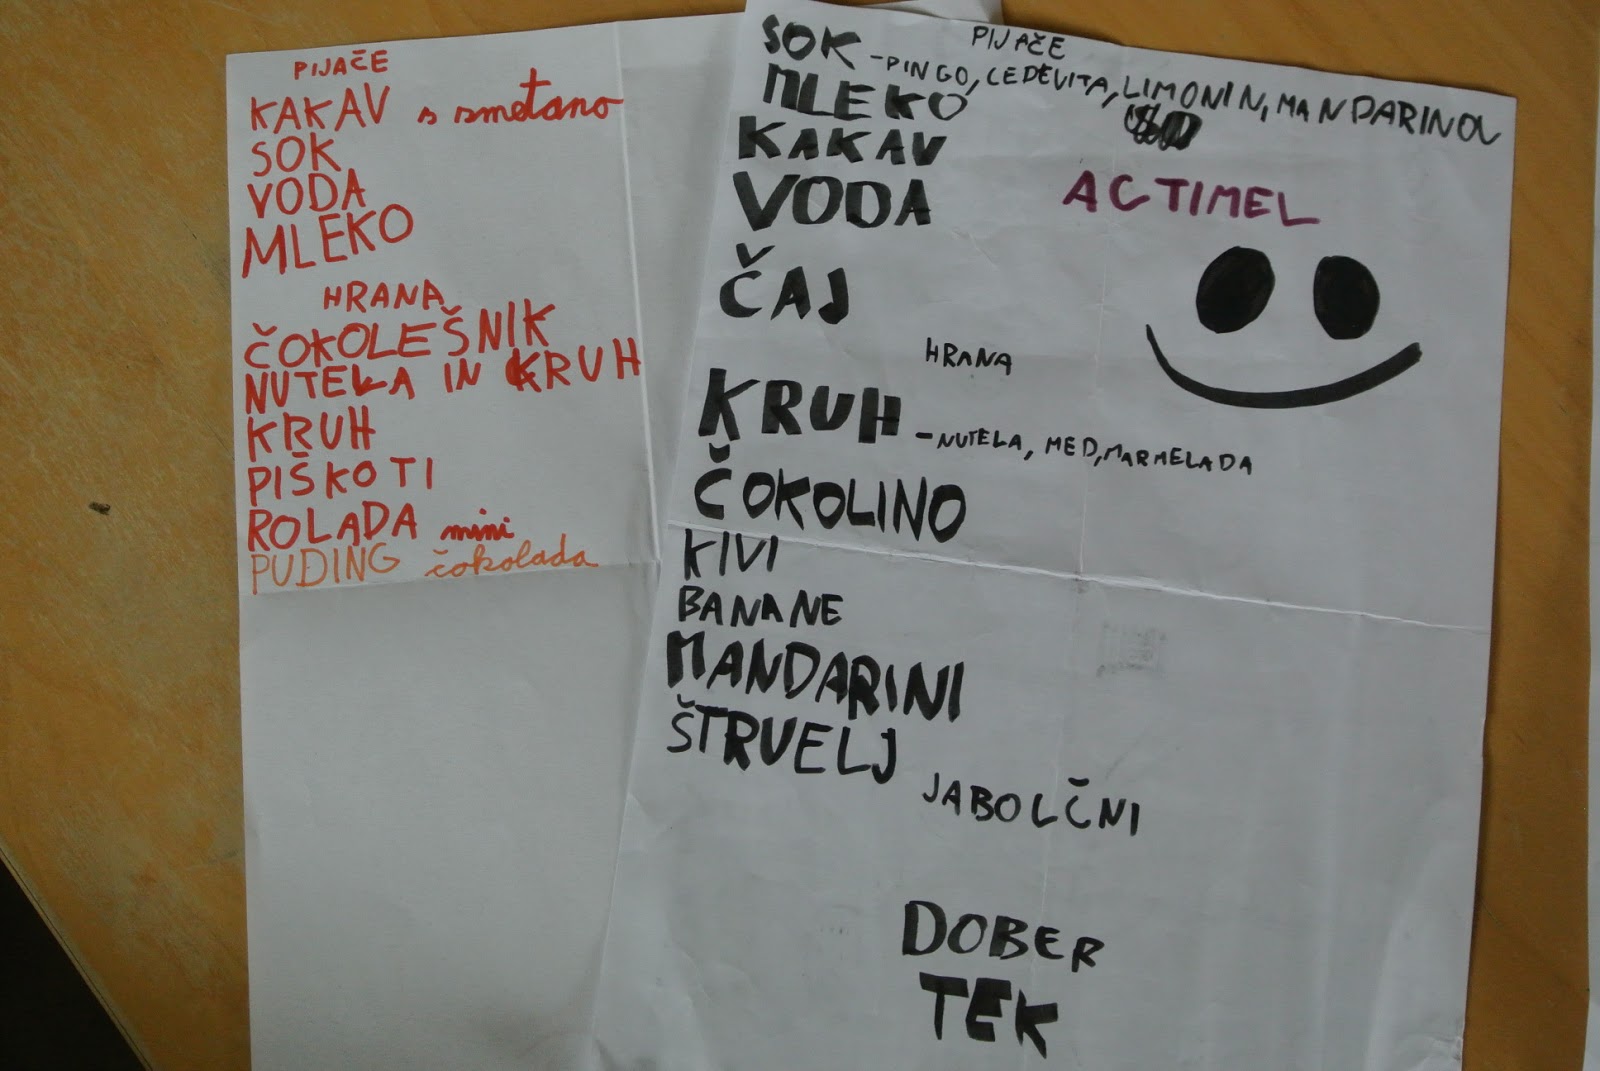 PIJAČE
KAKAV s smetano
SOK
VODA
MLEKO
HRANA
ČOKOLEŠNIK
NUTELA IN KRUH
KRUH
PIŠKOTI
ROLADA mini
PUDING čokolada
PIJAČE
SOK -PINGO, CEDEVITA, LIMONIN, MANDARINOV
MLEKO
KAKAV
VODA
ACTIMEL
ČAJ
HRANA
KRUH -NUTELA, MED, MARMELADA
ČOKOLINO
KIVI
BANANE
MANDARINI
ŠTRUELJ
JABOLČNI
DOBER
TEK